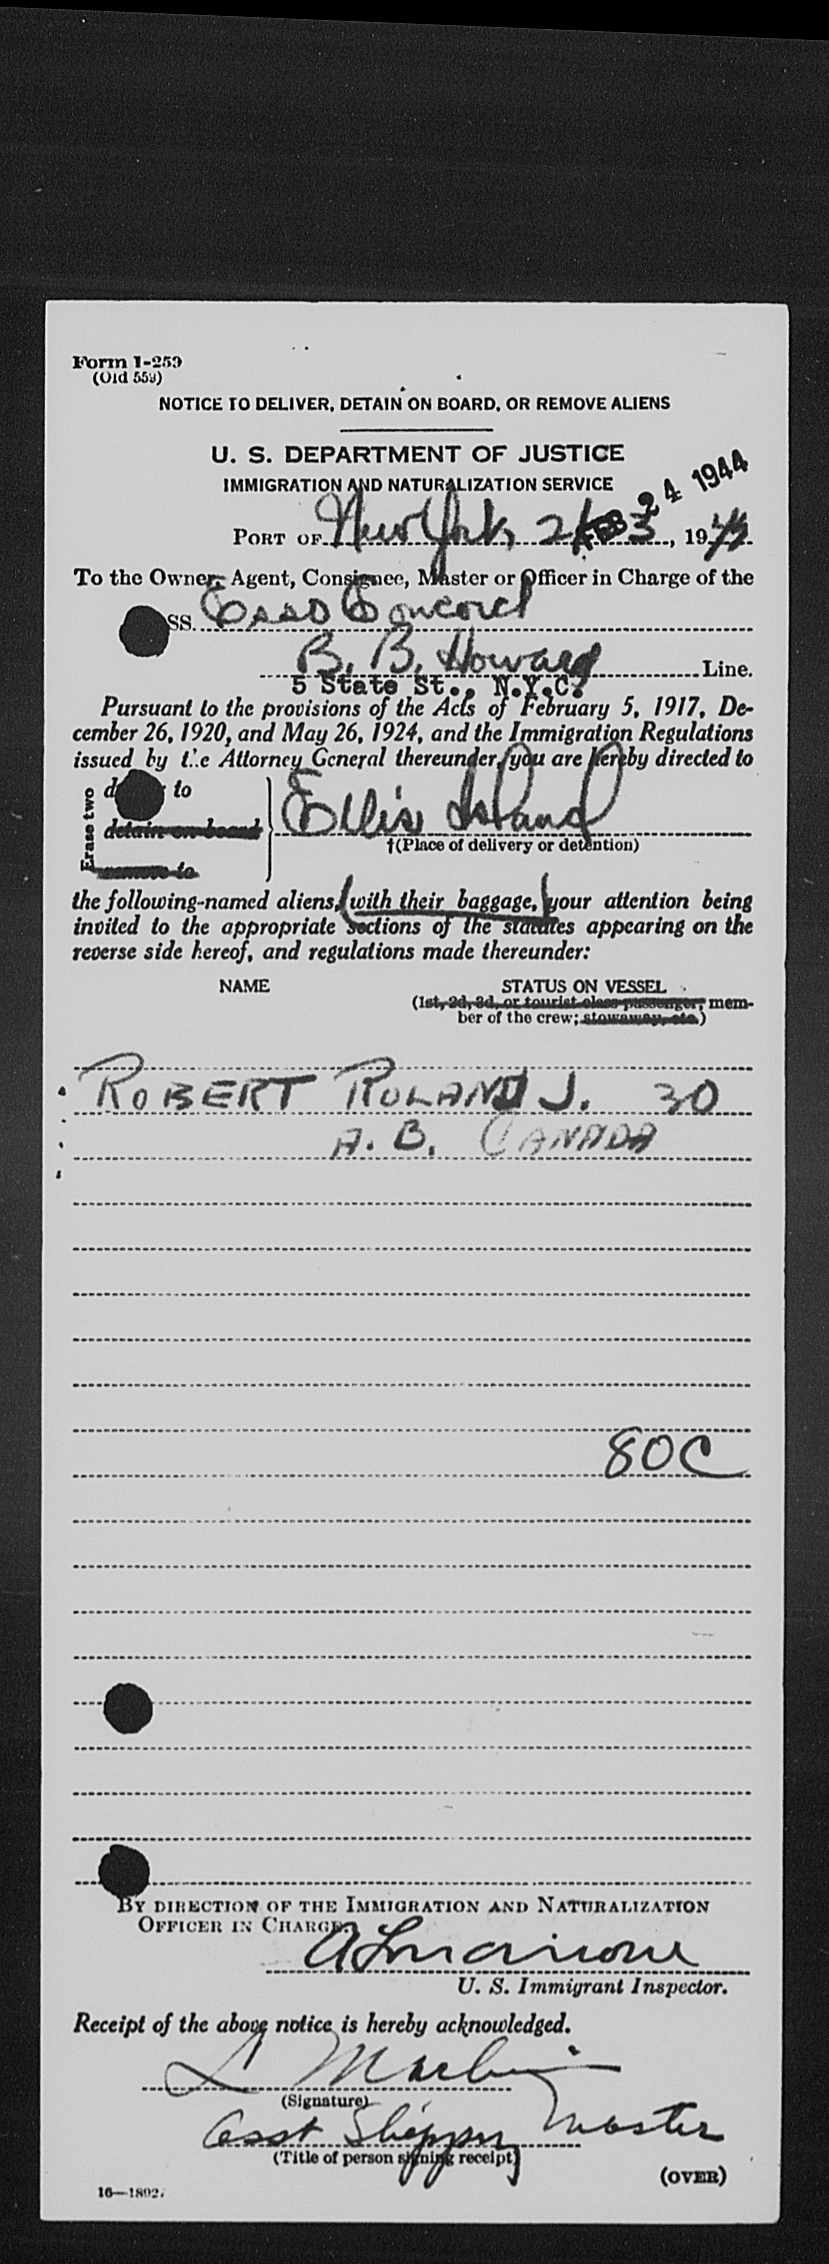 Form I-259
(Old 559)
NOTICE TO DELIVER, DETAIN ON BOARD, OR REMOVE ALIENS
U. S. DEPARTMENT OF JUSTICE
IMMIGRATION AND NATURALIZATION SERVICE
FEB 24 1944
PORT OF New York, 2/ 3, 1944
To the Owner, Agent, Consignee, Master or Officer in Charge of the
SS. Esso Concord
B. B. Howard Line.
5 State St., N.Y.C.
Pursuant to the provisions of the Acts of February 5, 1917, De-
cember 26, 1920, and May 26, 1924, and the Immigration Regulations
issued by the Attorney General thereunder, you are hereby directed to
Erase two
to
detain on board
remove to
Ellis Island
†(Place of delivery or detention)
the following-named aliens, (with their baggage, your attention being
invited to the appropriate sections of the statutes appearing on the
reverse side hereof, and regulations made thereunder:
NAME STATUS ON VESSEL
(1st, 2d, 3d, or tourist class passenger; mem-
ber of the crew; stowaway, etc.)
ROBERT ROLAND J. 30
A. B. CANADA
80C
BY DIRECTION OF THE IMMIGRATION AND NATURALIZATION
OFFICER IN CHARGE.
U. S. Immigrant Inspector.
Receipt of the above notice is hereby acknowledged.
(Signature)
Asst Shipping Master
(Title of person signing receipt)
(OVER)
16—1892